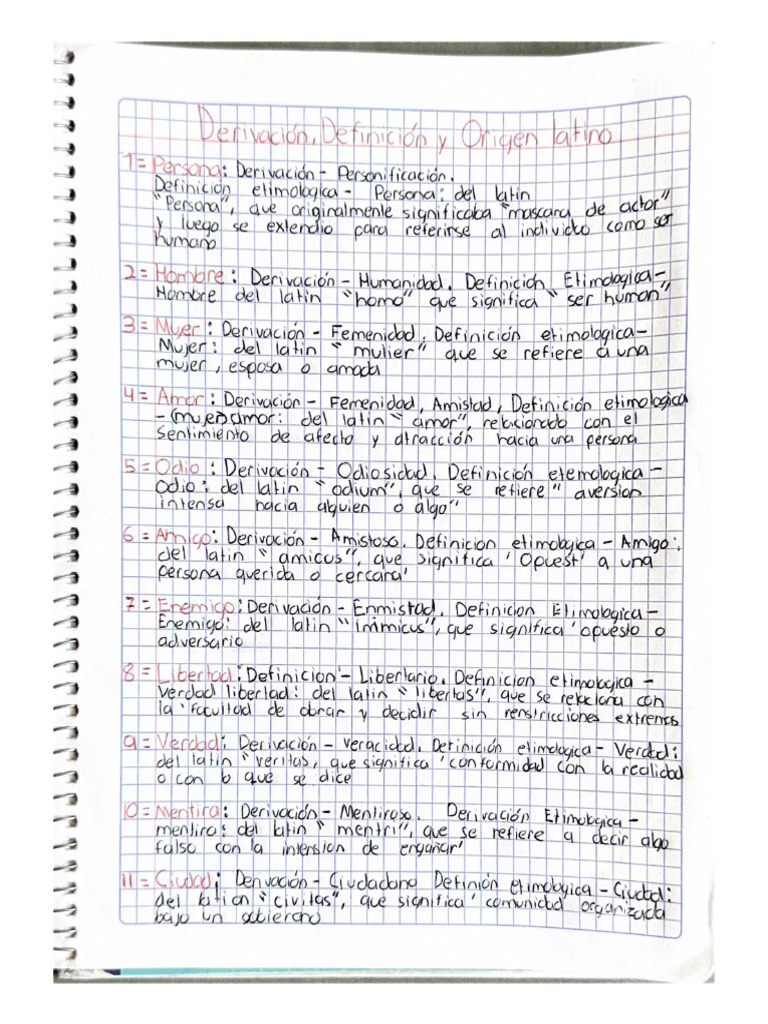 Derivación, Definición y Origen latino
1= Persona: Derivación - Personificación.
Definición etimologica - Persona: del latin
"Persona", que originalmente significaba "mascara de actor"
y luego se extendio para referirse al individuo como ser
humano
2= Hombre: Derivación - Humanidad. Definición Etimologica-
Hombre del latin "homo" que significa "ser human"
3= Mujer: Derivación - Femenidad, Definición etimologica-
Mujer: del latin "mulier" que se refiere a una
mujer, esposa o amada
4= Amor: Derivación - Femenidad, Amistad, Definición etimologica
- (mujer) amor: del latin "amor", relacionado con el
sentimiento de afecto y atracción hacia una persona
5= Odio: Derivación - Odiosidad. Definición etemologica -
Odio: del latin "odium", que se refiere "aversion
intensa hacia alguien o algo"
6= Amigo: Derivación - Amistoso. Definicion etimologica - Amigo:
del latin "amicus", que significa 'Opuest' a una
persona querida o cercana'
7= Enemigo: Derivación - Enmistad. Definicion Etimologica-
Enemigo: del latin "inimicus", que significa 'opuesto o
adversario
8= Libertad: Definicion - Libertario. Definicion etimologica -
verdad libertad: del latin "libertas", que se relaciona con
la 'facultad de obrar y decidir sin renstricciones extrenas
9= Verdad: Derivación - veracidad. Definición etimologica - Verdad:
del latin "veritas, que significa 'conformidad con la realidad
o con lo que se dice
10= Mentira: Derivación - Mentiroso. Derivación Etimologica -
mentira: del latin "mentri", que se refiere a decir algo
falso con la intension de engañar'
11= Ciudad: Derivación - Ciudadano Definión etimologica - Ciudad:
del lation "civitas", que significa 'comunidad organizada
bajo un gobierno